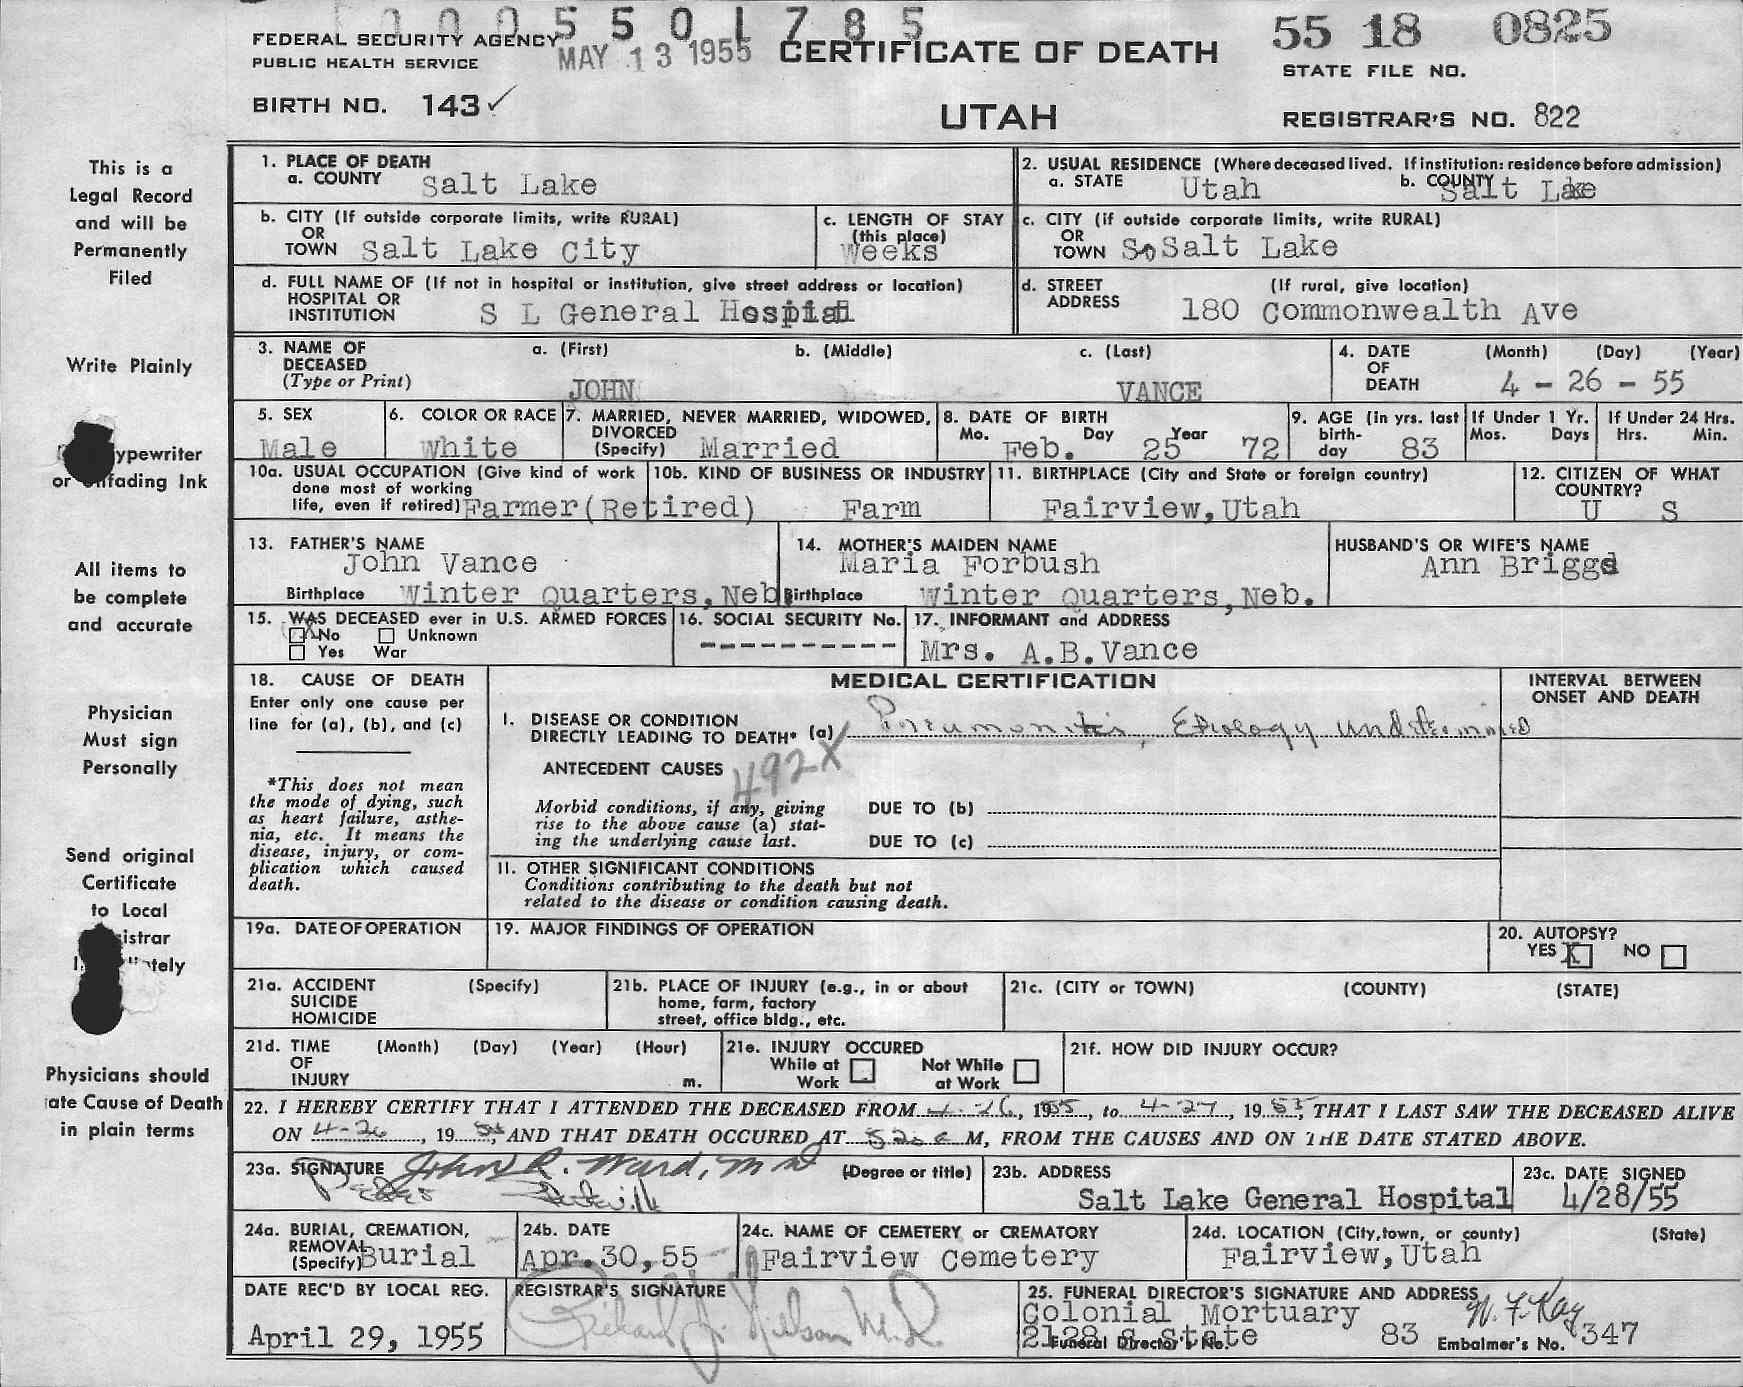 0005501785
FEDERAL SECURITY AGENCY
PUBLIC HEALTH SERVICE
MAY 13 1955
CERTIFICATE OF DEATH
55 18 0825
STATE FILE NO.
BIRTH NO. 143✓
UTAH
REGISTRAR'S NO. 822
This is a
Legal Record
and will be
Permanently
Filed
Write Plainly
ypewriter
or nfading Ink
All items to
be complete
and accurate
Physician
Must sign
Personally
Send original
Certificate
to Local
istrar
tely
Physicians should
ate Cause of Death
in plain terms
1. PLACE OF DEATH
a. COUNTY Salt Lake
2. USUAL RESIDENCE (Where deceased lived. If institution: residence before admission)
a. STATE Utah b. COUNTY Salt Lake
b. CITY (If outside corporate limits, write RURAL)
OR
TOWN Salt Lake City
c. LENGTH OF STAY
(this place)
Weeks
c. CITY (if outside corporate limits, write RURAL)
OR
TOWN So Salt Lake
d. FULL NAME OF (If not in hospital or institution, give street address or location)
HOSPITAL OR
INSTITUTION S L General Hospital
d. STREET (If rural, give location)
ADDRESS 180 Commonwealth Ave
3. NAME OF a. (First) b. (Middle) c. (Last)
DECEASED
(Type or Print) JOHN VANCE
4. DATE (Month) (Day) (Year)
OF
DEATH 4 - 26 - 55
5. SEX
Male
6. COLOR OR RACE
White
7. MARRIED, NEVER MARRIED, WIDOWED,
DIVORCED
(Specify) Married
8. DATE OF BIRTH
Mo. Day Year
Feb. 25 72
9. AGE (in yrs. last
birth-
day 83
If Under 1 Yr.
Mos. Days
If Under 24 Hrs.
Hrs. Min.
10a. USUAL OCCUPATION (Give kind of work
done most of working
life, even if retired) Farmer(Retired)
10b. KIND OF BUSINESS OR INDUSTRY
Farm
11. BIRTHPLACE (City and State or foreign country)
Fairview, Utah
12. CITIZEN OF WHAT
COUNTRY?
U S
13. FATHER'S NAME
John Vance
Birthplace Winter Quarters, Neb
14. MOTHER'S MAIDEN NAME
Maria Forbush
Birthplace Winter Quarters, Neb.
HUSBAND'S OR WIFE'S NAME
Ann Briggs
15. WAS DECEASED ever in U.S. ARMED FORCES
X No Unknown
Yes War
16. SOCIAL SECURITY No.
----------
17. INFORMANT and ADDRESS
Mrs. A.B.Vance
18. CAUSE OF DEATH
Enter only one cause per
line for (a), (b), and (c)
*This does not mean
the mode of dying, such
as heart failure, asthe-
nia, etc. It means the
disease, injury, or com-
plication which caused
death.
MEDICAL CERTIFICATION
INTERVAL BETWEEN
ONSET AND DEATH
I. DISEASE OR CONDITION
DIRECTLY LEADING TO DEATH* (a) Pneumonitis, Etiology undetermined
ANTECEDENT CAUSES 492X
Morbid conditions, if any, giving
rise to the above cause (a) stat-
ing the underlying cause last.
DUE TO (b)
DUE TO (c)
II. OTHER SIGNIFICANT CONDITIONS
Conditions contributing to the death but not
related to the disease or condition causing death.
19a. DATE OF OPERATION
19. MAJOR FINDINGS OF OPERATION
20. AUTOPSY?
YES X NO
21a. ACCIDENT (Specify)
SUICIDE
HOMICIDE
21b. PLACE OF INJURY (e.g., in or about
home, farm, factory
street, office bldg., etc.
21c. (CITY or TOWN) (COUNTY) (STATE)
21d. TIME (Month) (Day) (Year) (Hour)
OF
INJURY m.
21e. INJURY OCCURED
While at Work
Not While at Work
21f. HOW DID INJURY OCCUR?
22. I HEREBY CERTIFY THAT I ATTENDED THE DECEASED FROM 4-26, 1955, to 4-27, 1955, THAT I LAST SAW THE DECEASED ALIVE
ON 4-26, 1955, AND THAT DEATH OCCURED AT M, FROM THE CAUSES AND ON THE DATE STATED ABOVE.
23a. SIGNATURE John R. Ward, MD (Degree or title)
23b. ADDRESS
Salt Lake General Hospital
23c. DATE SIGNED
4/28/55
24a. BURIAL, CREMATION,
REMOVAL
(Specify) Burial
24b. DATE
Apr.30,55
24c. NAME OF CEMETERY or CREMATORY
Fairview Cemetery
24d. LOCATION (City,town, or county) (State)
Fairview, Utah
DATE REC'D BY LOCAL REG.
April 29, 1955
REGISTRAR'S SIGNATURE
Richard J. Nelson M.D.
25. FUNERAL DIRECTOR'S SIGNATURE AND ADDRESS
Colonial Mortuary W. F. Kay
2128 S State
Funeral Director's No. 83 Embalmer's No. 347